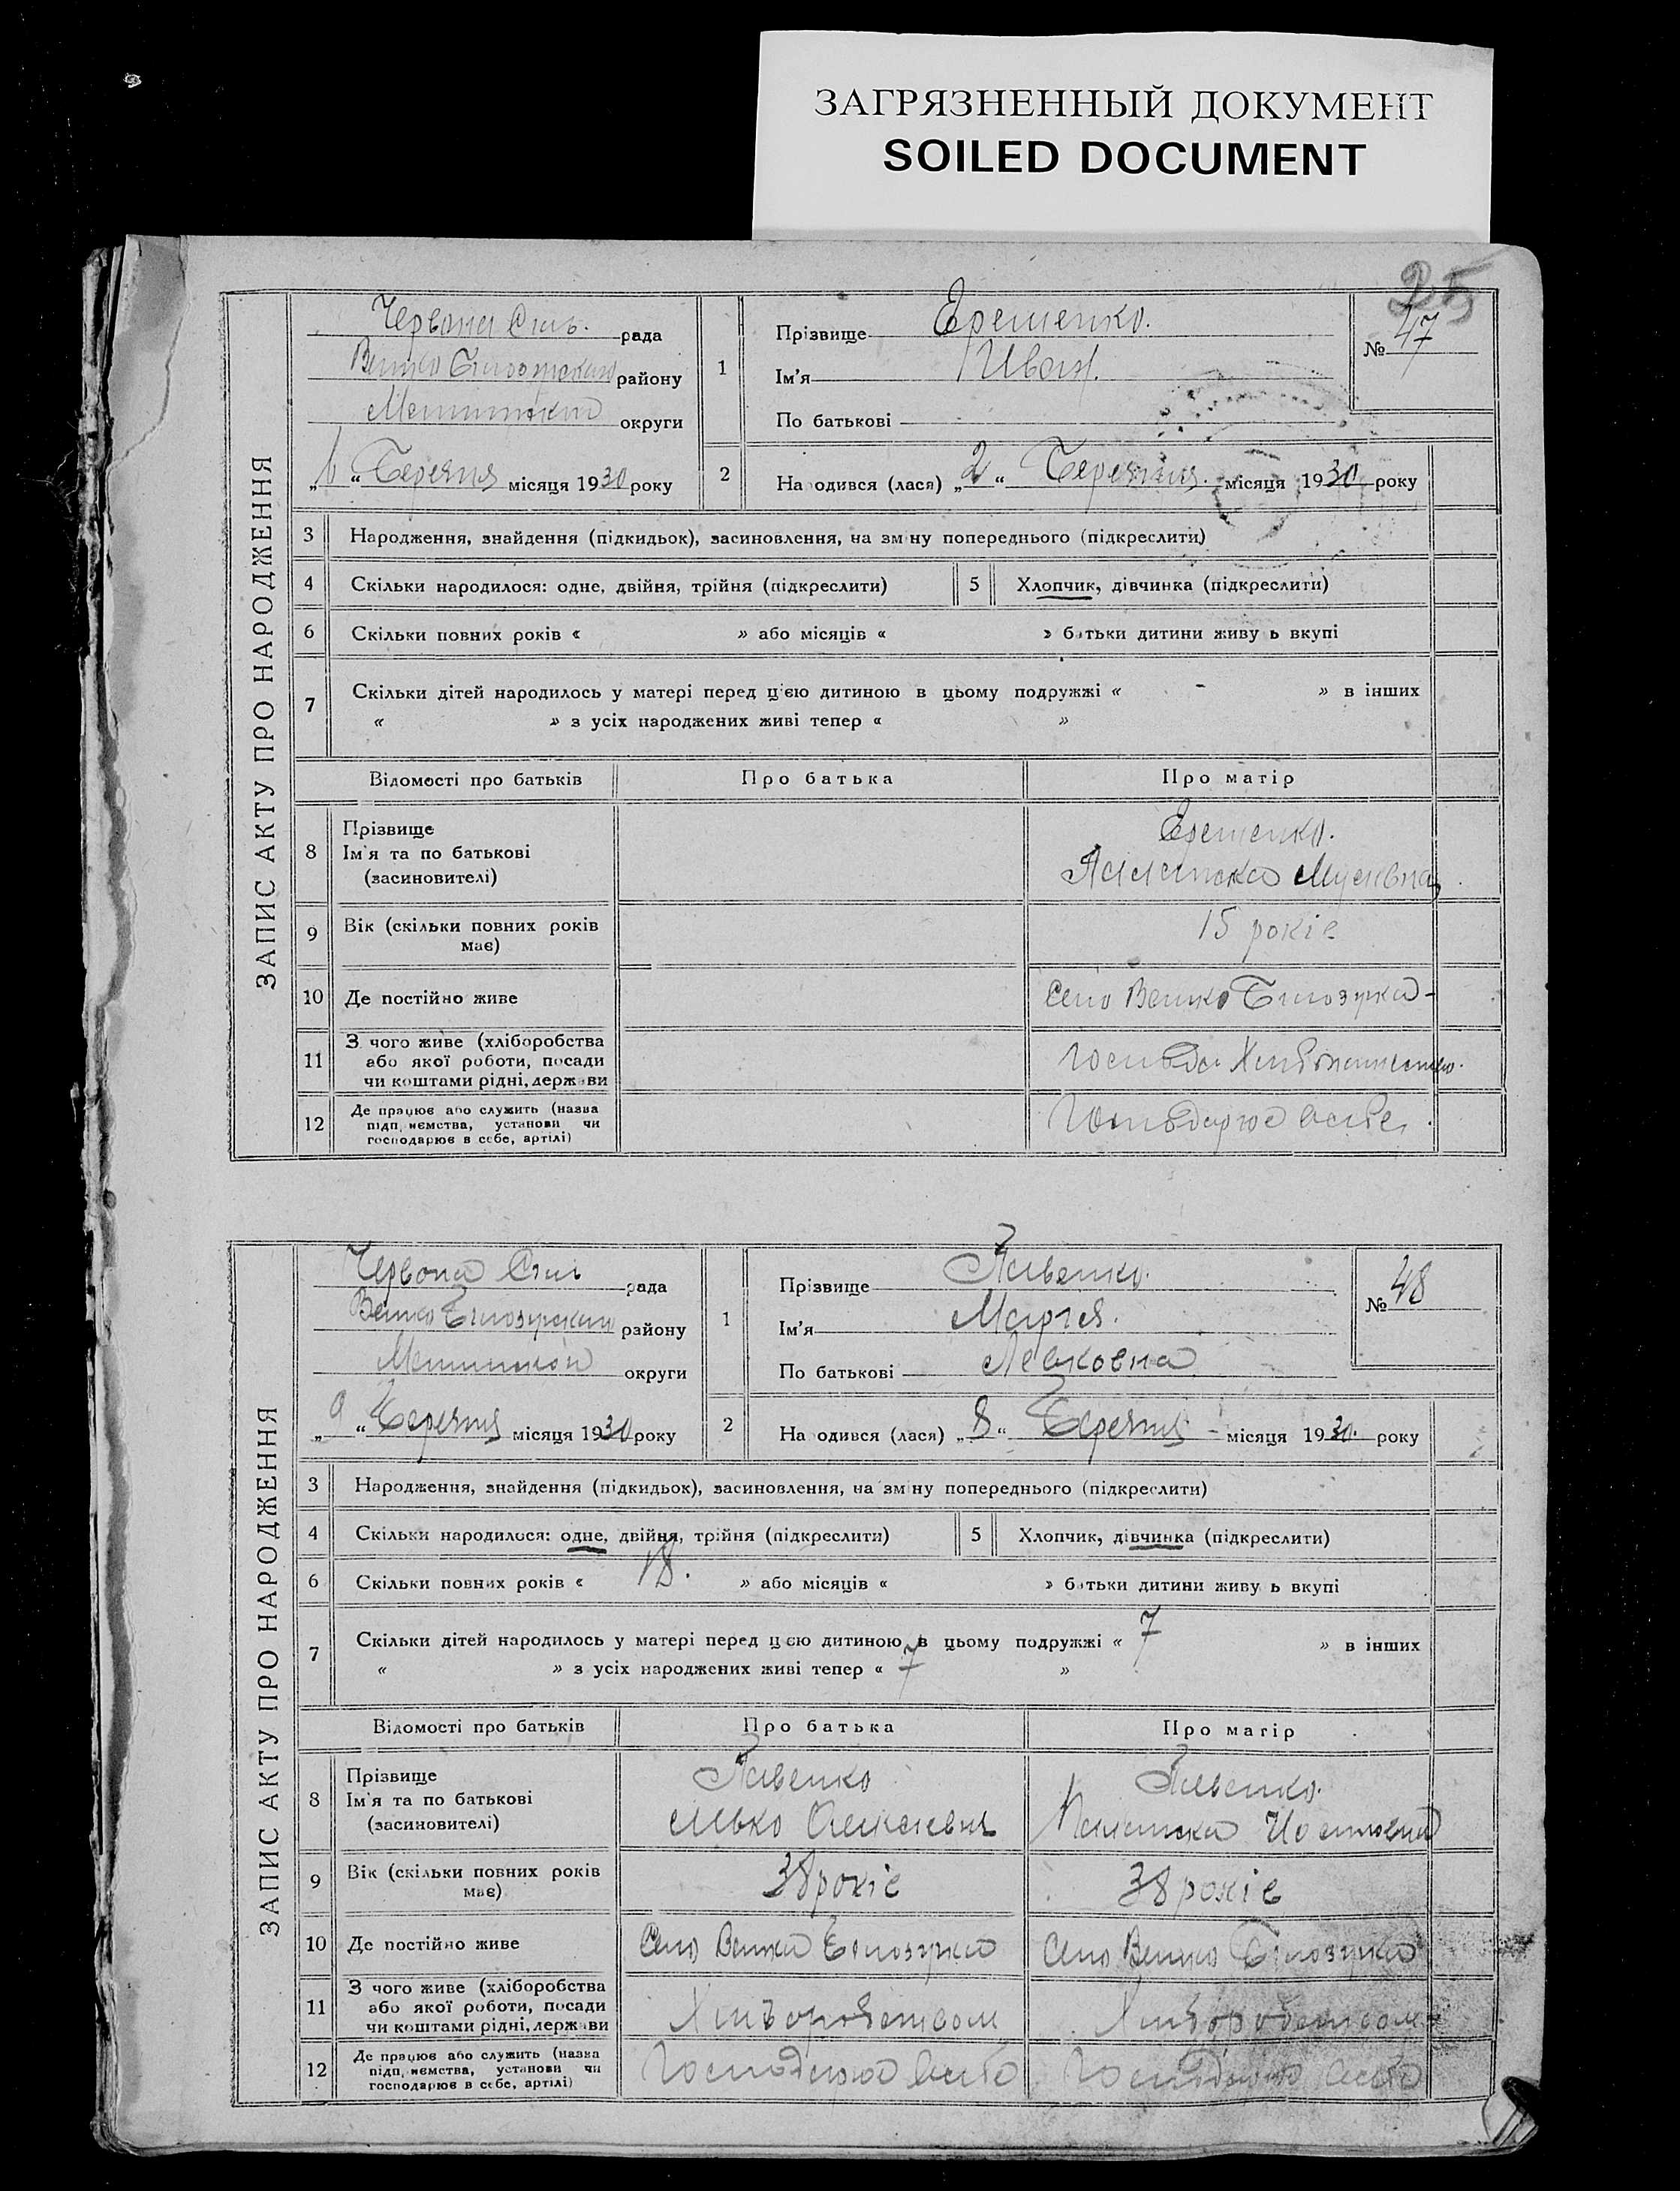 ЗАГРЯЗНЕННЫЙ ДОКУМЕНТ
SOILED DOCUMENT
25
ЗАПИС АКТУ ПРО НАРОДЖЕННЯ
рада
району
округи
Березня місяця 1930 року
1
Прізвище Єременко.
Ім'я Иван.
По батькові
№ 47
2
Народився (лася) „2“ Березня місяця 1930 року
3 Народження, знайдення (підкидьок), засиновлення, на зміну попереднього (підкреслити)
4 Скільки народилося: одне, двійня, трійня (підкреслити)
5 Хлопчик, дівчинка (підкреслити)
6 Скільки повних років « » або місяців « » батьки дитини живуть вкупі
7 Скільки дітей народилось у матері перед цією дитиною в цьому подружжі « - » в інших
« » з усіх народжених живі тепер « »
Відомості про батьків Про батька Про матір
8 Прізвище
Ім'я та по батькові
(засиновителі)
Єременко.
9 Вік (скільки повних років
має)
15 років
10 Де постійно живе
Село Велика Білозерка
11 З чого живе (хліборобства
або якої роботи, посади
чи коштами рідні, держави
12 Де працює або служить (назва
підприємства, установи чи
господарює в себе, артілі)
ЗАПИС АКТУ ПРО НАРОДЖЕННЯ
Червона рада
району
округи
„9“ Березня місяця 1930 року
1
Прізвище
Ім'я Марія.
По батькові Левковна
№ 48
2
Народився (лася) „8“ Березня місяця 1930 року
3 Народження, знайдення (підкидьок), засиновлення, на зміну попереднього (підкреслити)
4 Скільки народилося: одне, двійня, трійня (підкреслити)
5 Хлопчик, дівчинка (підкреслити)
6 Скільки повних років « 18. » або місяців « » батьки дитини живуть вкупі
7 Скільки дітей народилось у матері перед цією дитиною в цьому подружжі « 7 » в інших
« » з усіх народжених живі тепер « 7 »
Відомості про батьків Про батька Про матір
8 Прізвище
Ім'я та по батькові
(засиновителі)
9 Вік (скільки повних років
має)
38 років 38 років
10 Де постійно живе
Село Велика Білозерка Село Велика Білозерка
11 З чого живе (хліборобства
або якої роботи, посади
чи коштами рідні, держави
Хліборобством Хліборобством
12 Де працює або служить (назва
підприємства, установи чи
господарює в себе, артілі)